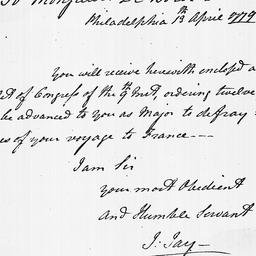 Philadelphia 13th April 1779
you will receive herewith enclosed a
of Congress of the 9th Inst, ordering twelve
be advanced to you as Major to defray
es of your voyage to France —
I am Sir
your most Obedient
and Humble Servant
J: Jay —